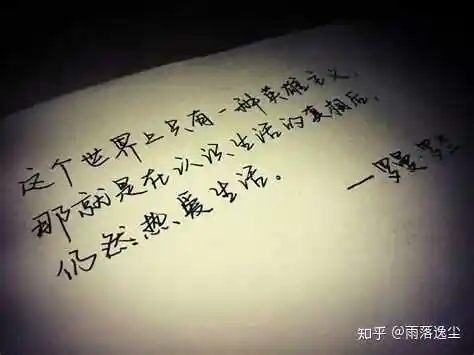 这个世界上只有一种英雄主义,
那就是在认识生活的真相后,
仍然热爱生活。
一罗曼·罗兰
知乎 @雨落逸尘